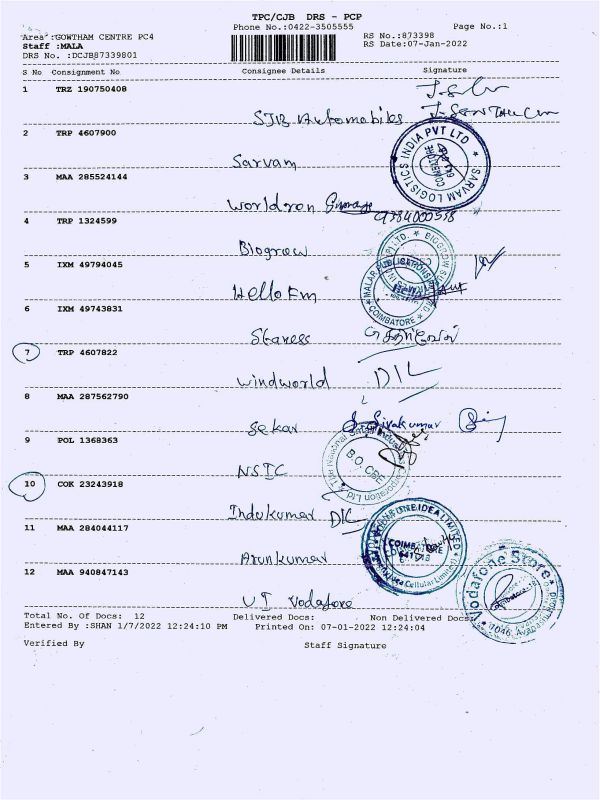 TPC/CJB DRS - PCP
Phone No.:0422-3505555 Page No.:1
Area :GOWTHAM CENTRE PC4 RS No.:873398
Staff :MALA RS Date:07-Jan-2022
DRS No. :DCJB87339801
S No Consignment No Consignee Details Signature
1 TRZ 190750408
SJB Automobiles
2 TRP 4607900
Sarvam
SARVAM LOGISTICS INDIA PVT LTD
3 MAA 285524144
Worldron
4 TRP 1324599 9384000558
Biogrow
5 IXM 49794045
Hello Fm
COIMBATORE
6 IXM 49743831
Staness
7 TRP 4607822
Windworld DIL
8 MAA 287562790
Sekar S. Sivakumar
9 POL 1368363
NSIC
B.O. CBE
10 COK 23243918
Indukumar DIL
11 MAA 284044117
Arunkumar
12 MAA 940847143
UI Vodafore
Vodafone Store
Total No. Of Docs: 12 Delivered Docs: Non Delivered Docs:
Entered By :SHAN 1/7/2022 12:24:10 PM Printed On: 07-01-2022 12:24:04
Verified By Staff Signature